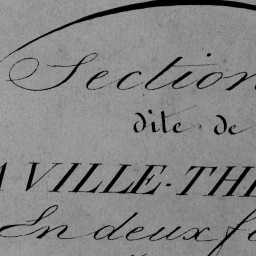 Section
dite de
A VILLE-THE
En deux f